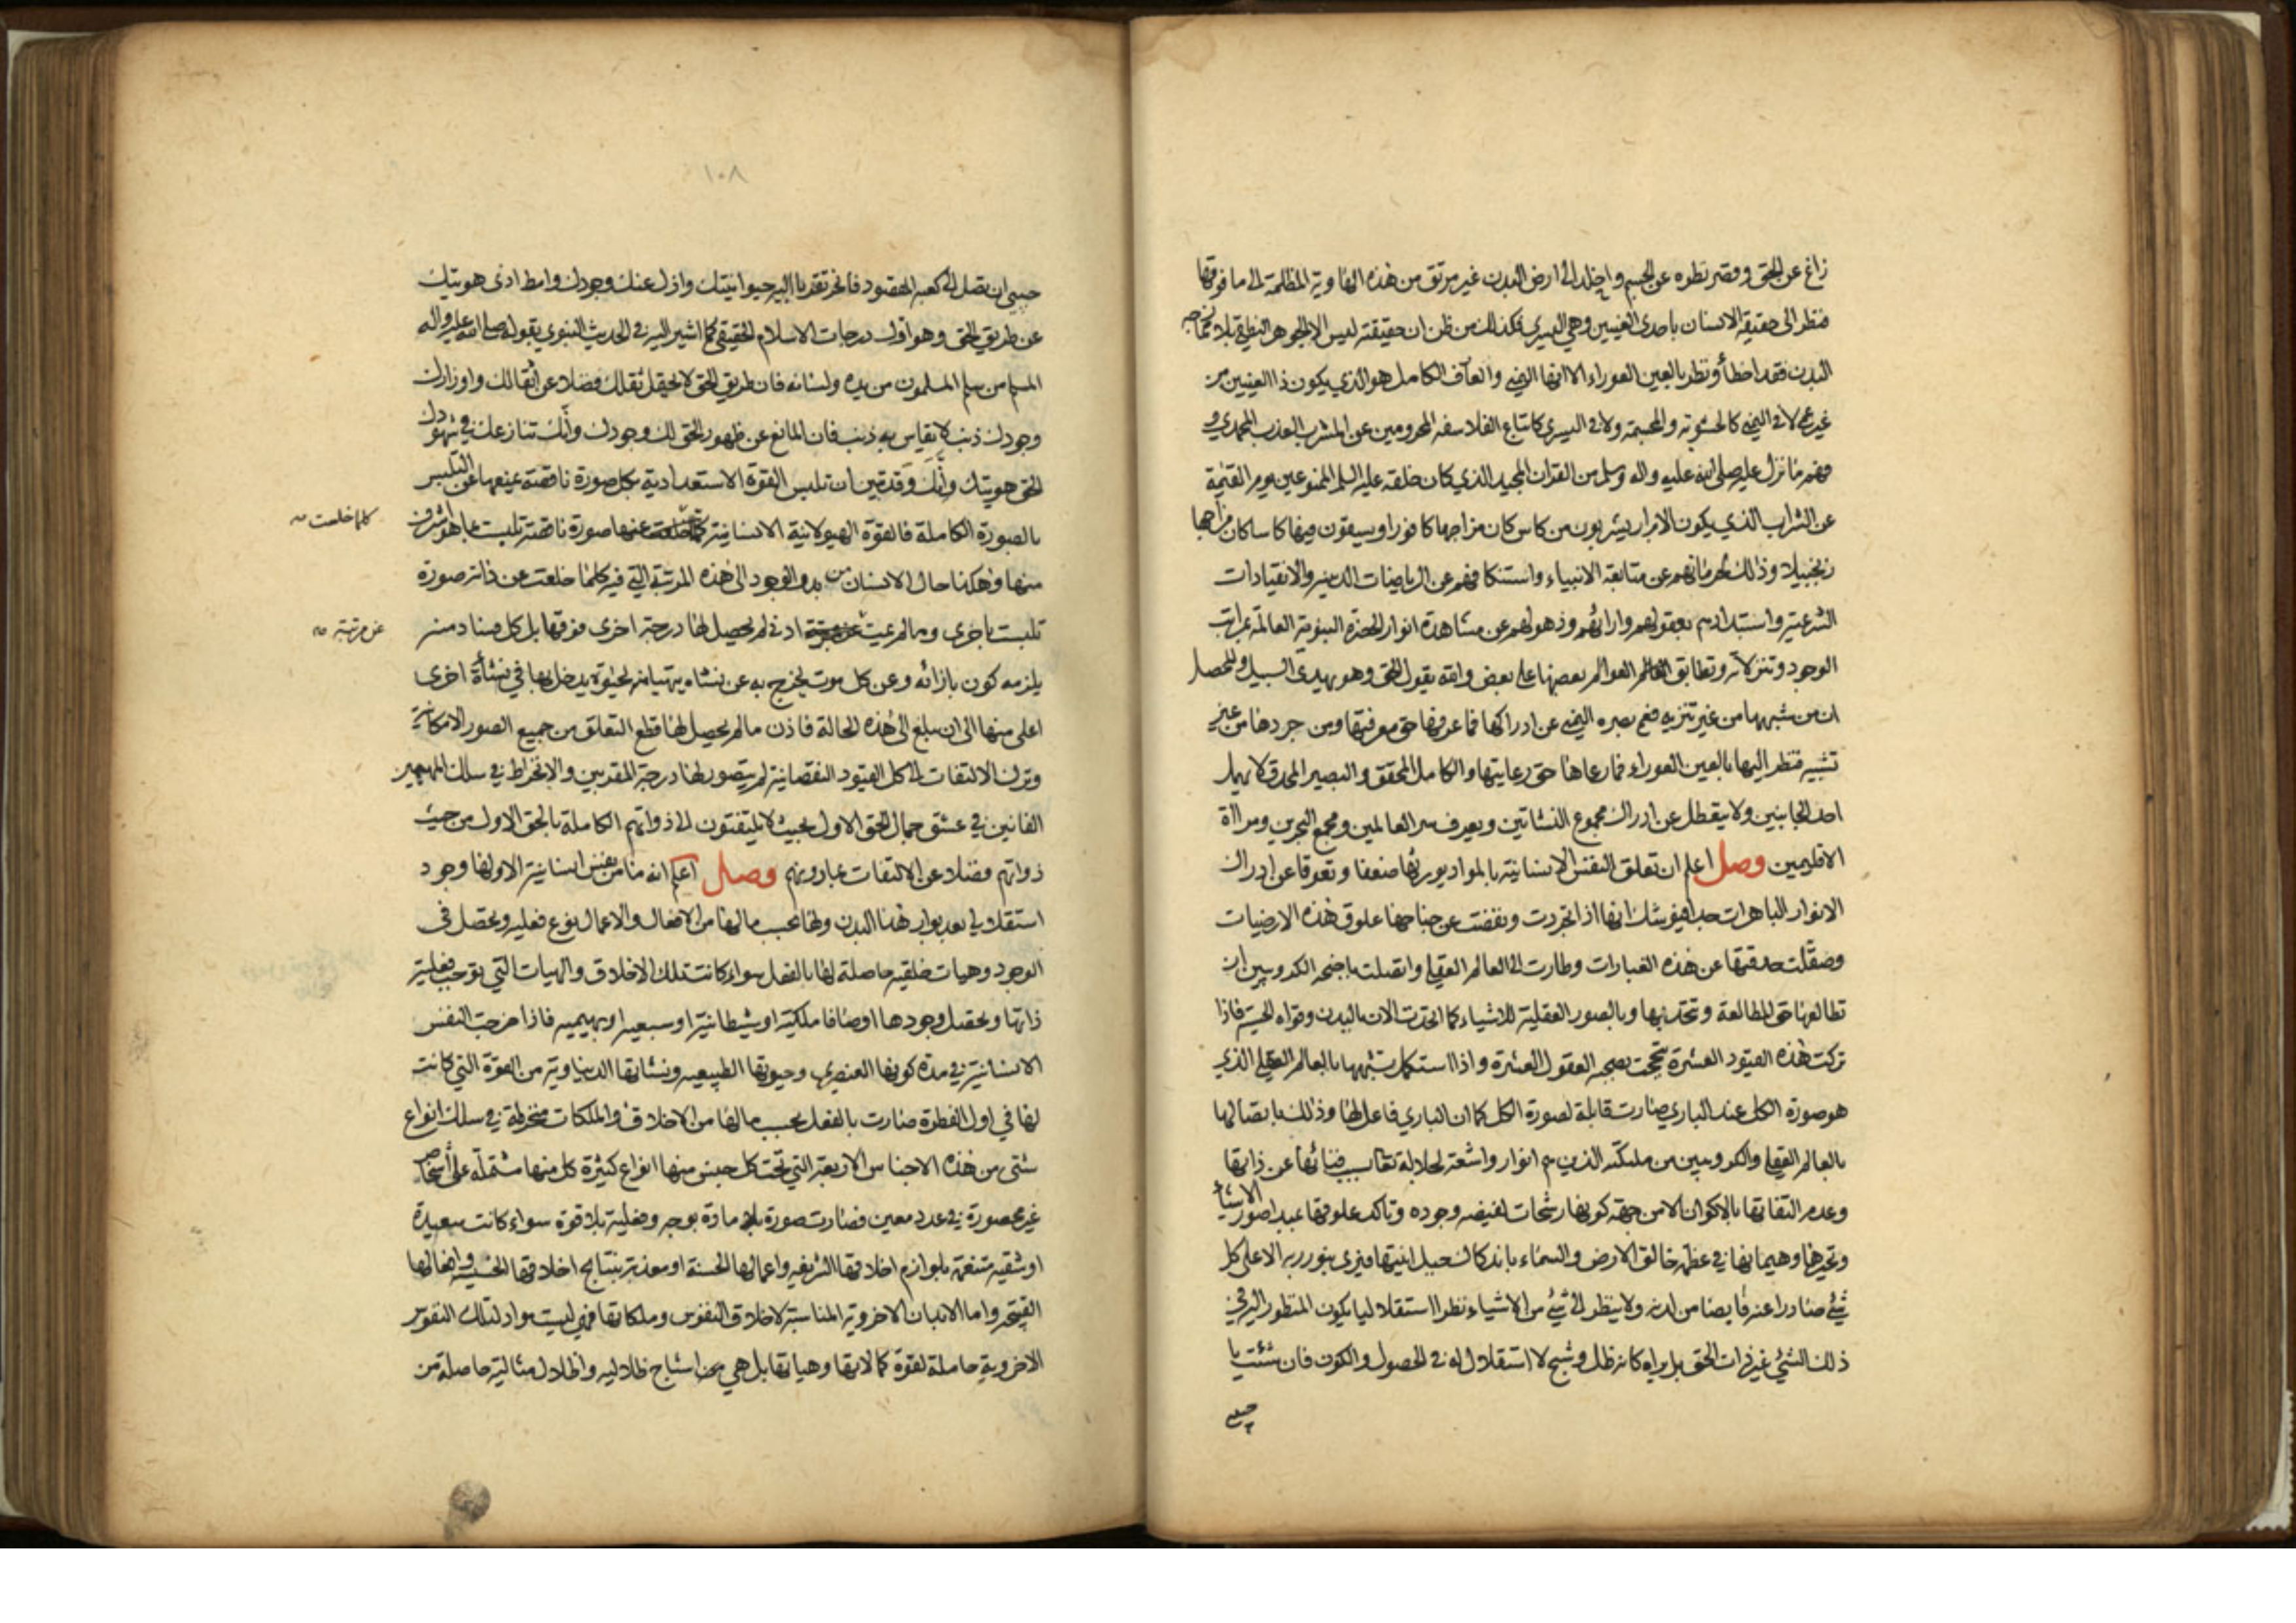 زاغ عن الحق وقصر نظره عن الجسم واخلد الى ارض البدن غير مرتق من هذه الهاوية المظلمة الى ما فوقها
فنظر الى حقيقة الانسان باحدى العينين وهي اليسرى فكذلك من ظن ان حقيقته ليس الا الجوهر النطقي بلا
البدن فقد اخطأ ونظر بالعين العوراء الا انها اليمنى والعارف الكامل هو الذي يكون ذا العينين من
غير عمى لا في اليمنى كالحشوية والمجسمة ولا في اليسرى كاتباع الفلاسفه المحرومين عن المشرب العذب المحمدي و
فهم ما نزل عليه صلى الله عليه واله وسلم من القران المجيد الذي كان خلقه عليه السلم الممنوعين يوم القيمة
عن الشراب الذي يكون الابرار يشربون من كاس كان مزاجها كافورا ويسقون فيها كاسا كان مزاجها
زنجبيلا وذلك لحرمانهم عن متابعة الانبياء واستنكافهم عن الرياضات الدينيه والانقيادات
الشرعية واستبدادهم بعقولهم وارائهم وذهولهم عن مشاهدة انوار الحضرة النبوية العالمة بمراتب
الوجود وتنزلاته وتطابق العوالم بعضها على بعض والله يقول الحق وهو يهدي السبيل والمحصل
ان من شبهها من غير تنزيه فعمي بصره اليمنى عن ادراكها فما عرفها حق معرفتها ومن جردها من غير
تشبيه فنظر اليها بالعين العوراء فما رعاها حق رعايتها والكامل المحقق والبصير المحدق لا يهمل
احد الجانبين ولا يعطل عن ادراك مجموع النشاتين ويعرف سر العالمين ومجمع البحرين ومراة
الاقليمين وصل اعلم ان تعلق النفس الانسانية بالمواد يورثها ضعفا وتعوقا عن ادراك
الانوار الباهرات جدا فيوشك انها اذا تجردت ونفضت عن جناحها علوق هذه الارضيات
وصقلت حدقتها عن هذه الغبارات وطارت الى العالم العقلي واتصلت باجنحه الكروبيين ان
تطالعها حق المطالعة وتتحد بها وبالصور العقلية للاشياء كما اتحدت الان بالبدن وقواه الحسية فاذا
تركت هذه القيود العشرة نجحت بصحبه العقول العشرة واذا استكمل تشبهها بالعالم العقلي الذي
هو صورة الكل عند الباري صارت قابلة لصورة الكل كما ان الباري فاعل لها وذلك باتصالها
بالعالم العقلي والكروبيين من ملئكته الذين هم انوار واشعة لجلاله تعالى بسبب فنائها عن ذاتها
وعدم التفاتها بالاكوان الا من جهة كونها رشحات لفيضه وجوده وتاكد علوقها بمبدا صور الاشياء
وتحيرها وهيمانها في عظمة خالق الارض والسماء باندكاك جبل انيتها فيرى بنور ربه الاعلى كل
شيء صادرا عنه فايضا من لدنه ولا ينظر الى شيء من الاشياء نظرا استقلاليا يكون المنظور اليه في
ذلك الشيء غير ذات الحق بل يراه كانه ظل وشبح لا استقلال له في الحصول والكون فان شئت يا
حبيبي
١٠٨
حبيبي ان تصل الى كعبه المقصود فانحر تقربا اليه حيوانيتك وازل عنك وجودك وامط اذى هويتك
عن طريق الحق وهو اول درجات الاسلام الحقيقي كما اشير اليه في الحديث النبوي بقوله صلى الله عليه واله
المسلم من سلم المسلمون من يده ولسانه فان طريق الحق لا يحتمل ثقلك فضلا عن اثقالك واوزارك
وجودك ذنب لا يقاس به ذنب فان المانع عن ظهور الحق لك وجودك وانك تنازعك في شهود
الحق هويتك وانك وقد تبين ان تلبس القوة الاستعدادية بكل صورة ناقصة يمنعها عن التلبس
بالصورة الكاملة فالقوة الهيولانية الانسانية عنها صورة ناقصة تلبست بما هو اشرف
كلما خلعت
منها وهكذا حال الانسان من بدو الوجود الى هذه المرتبة التي فيه كلما خلعت عن ذاته صورة
تلبست باخرى وما لم عن مرتبة ادنى لم يحصل لها درجة اخرى فوقها بل كل فساد منه
عن مرتبة
يلزمه كون بازائه وعن كل موت يخرج به عن نشاه يتهيا له لحيوة يدخل بها في نشأة اخرى
اعلى منها الى ان يبلغ الى هذه الحالة فاذن ما لم يحصل لها قطع التعلق من جميع الصور الامكانية
وترك الالتفات الى كل القيود النقصانية لم يتصور لها درجة المقربين والانخراط في سلك المهيمين
الفانين في عشق جمال الحق الاول بحيث لا يلتفتون الى ذواتهم الكاملة بالحق الاول من حيث
ذواتهم فضلا عن الالتفات بما دونهم وصل اعلم انه ما من نفس انسانية الا ولها وجود
استقلالي بعد بوار هذا البدن ولها بحسب مالها من الافعال والاعمال نوع فعلية وتحصل في
الوجود وهيات خلقيه حاصلة لها بالفعل سواء كانت تلك الاخلاق والهيات التي توجب فعلية
ذاتها وتحصل وجودها اوصافا ملكية او شيطانية او سبعيه او بهيميه فاذا خرجت النفس
الانسانية في مدة كونها العنصري وحيوتها الطبيعيه ونشاتها الدنياوية من القوة التي كانت
لها في اول الفطرة صارت بالفعل بحسب مالها من الاخلاق والملكات منخرطة في سلك انواع
شتى من هذه الاجناس الاربعة التي تحت كل جنس منها انواع كثيرة كل منها مشتملة على اشخاص
غير محصورة في عدد معين فصارت صورة بلا مادة بوجه وفعلية بلا قوة سواء كانت سعيدة
او شقيه متنعمة بلوازم اخلاقها الشريفه واعمالها الحسنة او معذبة بنتايج اخلاقها الخسيسه وافعالها
القبيحه واما الابدان الاخروية المناسبة لاخلاق النفوس وملكاتها فهي ليست مواد لتلك النفوس
الاخروية حاملة لقوة كمالاتها وهياتها بل هي محض اشباح ظلاليه واظلال مثالية حاصلة من